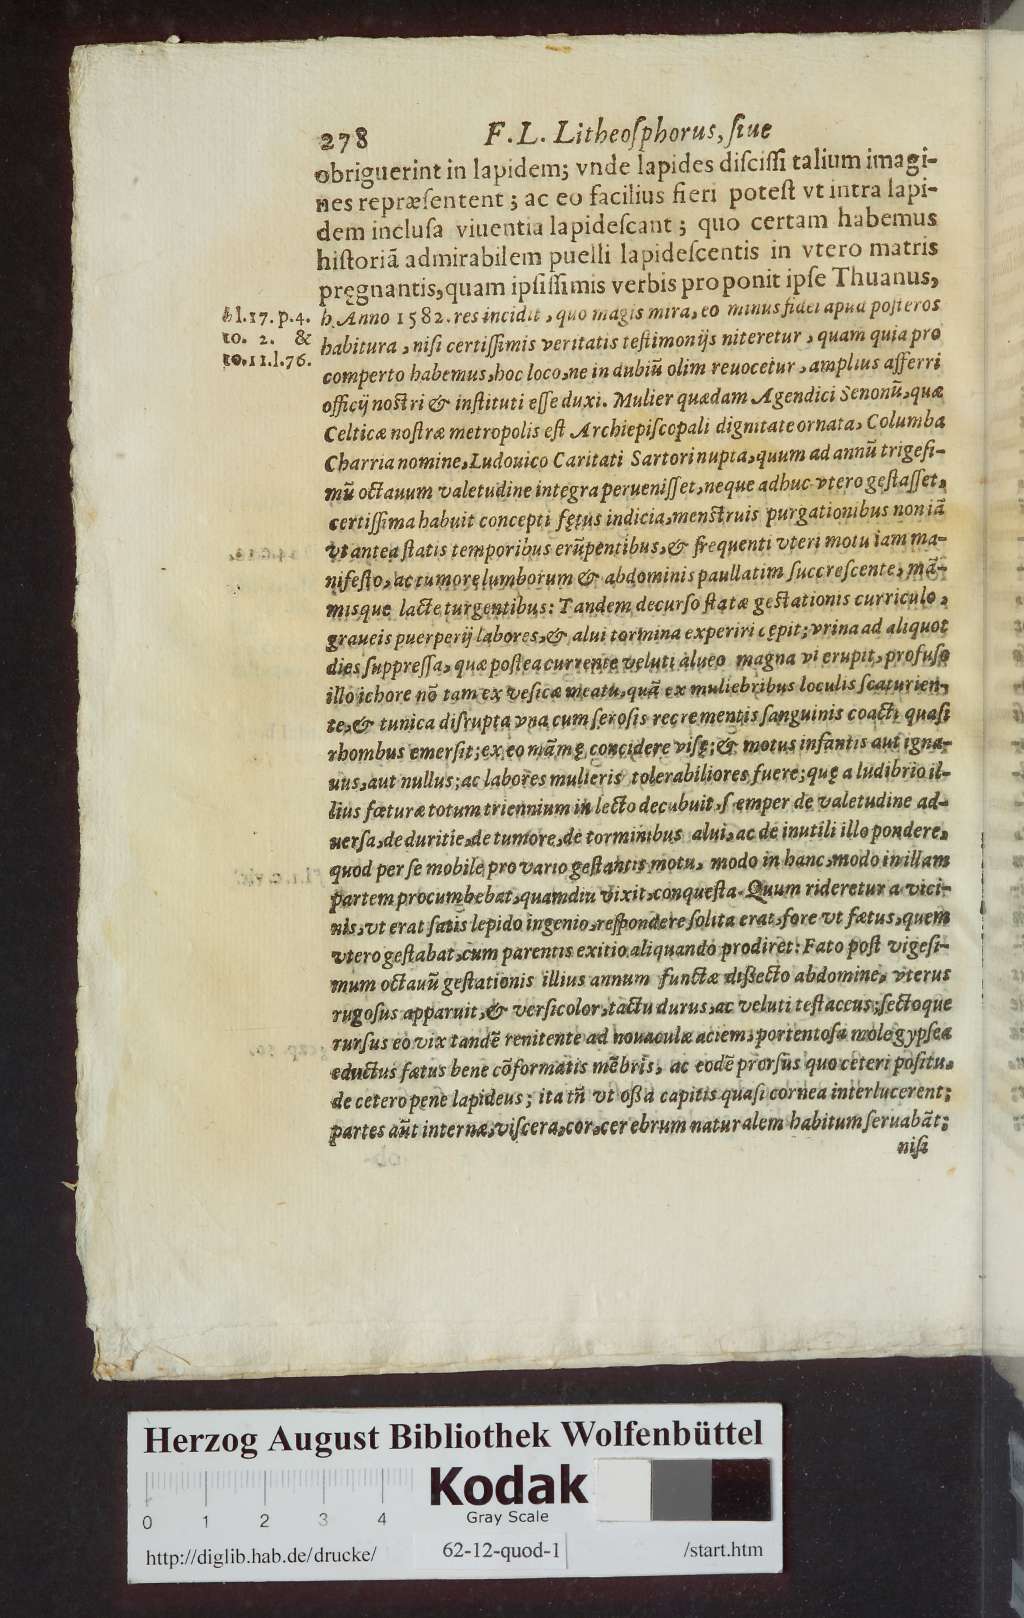 278 F. L. Litheoſphorus, ſiue
obriguerint in lapidem; vnde lapides diſciſſi talium imagi-
nes repræſentent; ac eo facilius fieri poteſt vt intra lapi-
dem incluſa viuentia lapideſcant; quo certam habemus
hiſtoriã admirabilem puelli lapideſcentis in vtero matris
pręgnantis, quam ipſiſſimis verbis proponit ipſe Thuanus,
h l.17. p.4.
to. 2. &
to.11.l.76.
h. Anno 1582. res incidit, quo magis mira, eo minus fidei apud poſteros
habitura, niſi certiſſimis veritatis teſtimonijs niteretur, quam quia pro
comperto habemus, hoc loco, ne in dubiũ olim reuocetur, amplius afferri
officij noſtri & inſtituti eſſe duxi. Mulier quædam Agendici Senonũ, quæ
Celticæ noſtræ metropolis eſt Archiepiſcopali dignitate ornata, Columba
Charria nomine, Ludouico Caritati Sartori nupta, quum ad annũ trigeſi-
mũ octauum valetudine integra perueniſſet, neque adhuc vtero geſtaſſet,
certiſſima habuit concepti fętus indicia, menſtruis purgationibus non iã
vt antea ſtatis temporibus erũpentibus, & frequenti vteri motu iam ma-
nifeſto, ac tumore lumborum & abdominis paullatim ſuccreſcente, mã-
misque lacte turgentibus: Tandem decurſo ſtatæ geſtationis curriculo,
graueis puerperij labores, & alui tormina experiri cępit; vrina ad aliquot
dies ſuppreſſa, quæ poſtea currente veluti alueo magna vi erupit, profuſo
illo ichore nõ tam ex veſicæ meatu, quã ex muliebribus loculis ſcaturien-
te, & tunica diſrupta vna cum ſeroſis recrementis ſanguinis coacti quaſi
rhombus emerſit; ex eo mãmę concidere viſę; & motus infantis aut igna-
uus, aut nullus; ac labores mulieris tolerabiliores fuere; quę a ludibrio il-
lius fæturæ totum triennium in lecto decubuit, ſemper de valetudine ad-
uerſa, de duritie, de tumore, de torminibus alui, ac de inutili illo pondere,
quod per ſe mobile pro vario geſtantis motu, modo in hanc, modo in illam
partem procumbebat, quamdiu vixit, conqueſta. Quum rideretur a vici-
nis, vt erat ſatis lepido ingenio, reſpondere ſolita erat, fore vt fætus, quem
vtero geſtabat, cum parentis exitio aliquando prodiret: Fato poſt vigeſi-
mum octauũ geſtationis illius annum functæ diſſecto abdomine, vterus
rugoſus apparuit, & verſicolor, tactu durus, ac veluti teſtaceus; ſectoque
rurſus eo vix tandẽ renitente ad nouaculæ aciem, portentoſa mole gypſea
eductus fætus bene cõformatis mẽbris, ac eodẽ prorſus quo ceteri poſitu,
de cetero pene lapideus; ita tñ vt oſſa capitis quaſi cornea interlucerent;
partes aũt internæ, viſcera, cor, cerebrum naturalem habitum ſeruabãt;
niſi
Herzog August Bibliothek Wolfenbüttel
0 1 2 3 4
Kodak
Gray Scale
http://diglib.hab.de/drucke/ 62-12-quod-1 /start.htm